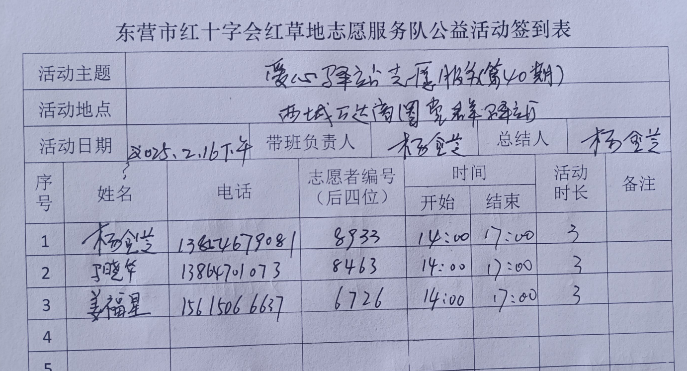 东营市红十字会红草地志愿服务队公益活动签到表
活动主题 爱心驿站志愿服务(第40期)
活动地点 西城万达商圈党群驿站
活动日期 2025.2.16下午 带班负责人 杨金芝 总结人 杨金芝
序号 姓名 电话 志愿者编号（后四位） 时间 开始 结束 活动时长 备注
1 杨金芝 13854679081 8933 14:00 17:00 3
2 丁晓华 13864701073 8463 14:00 17:00 3
3 姜福星 15615066637 6726 14:00 17:00 3
4
5